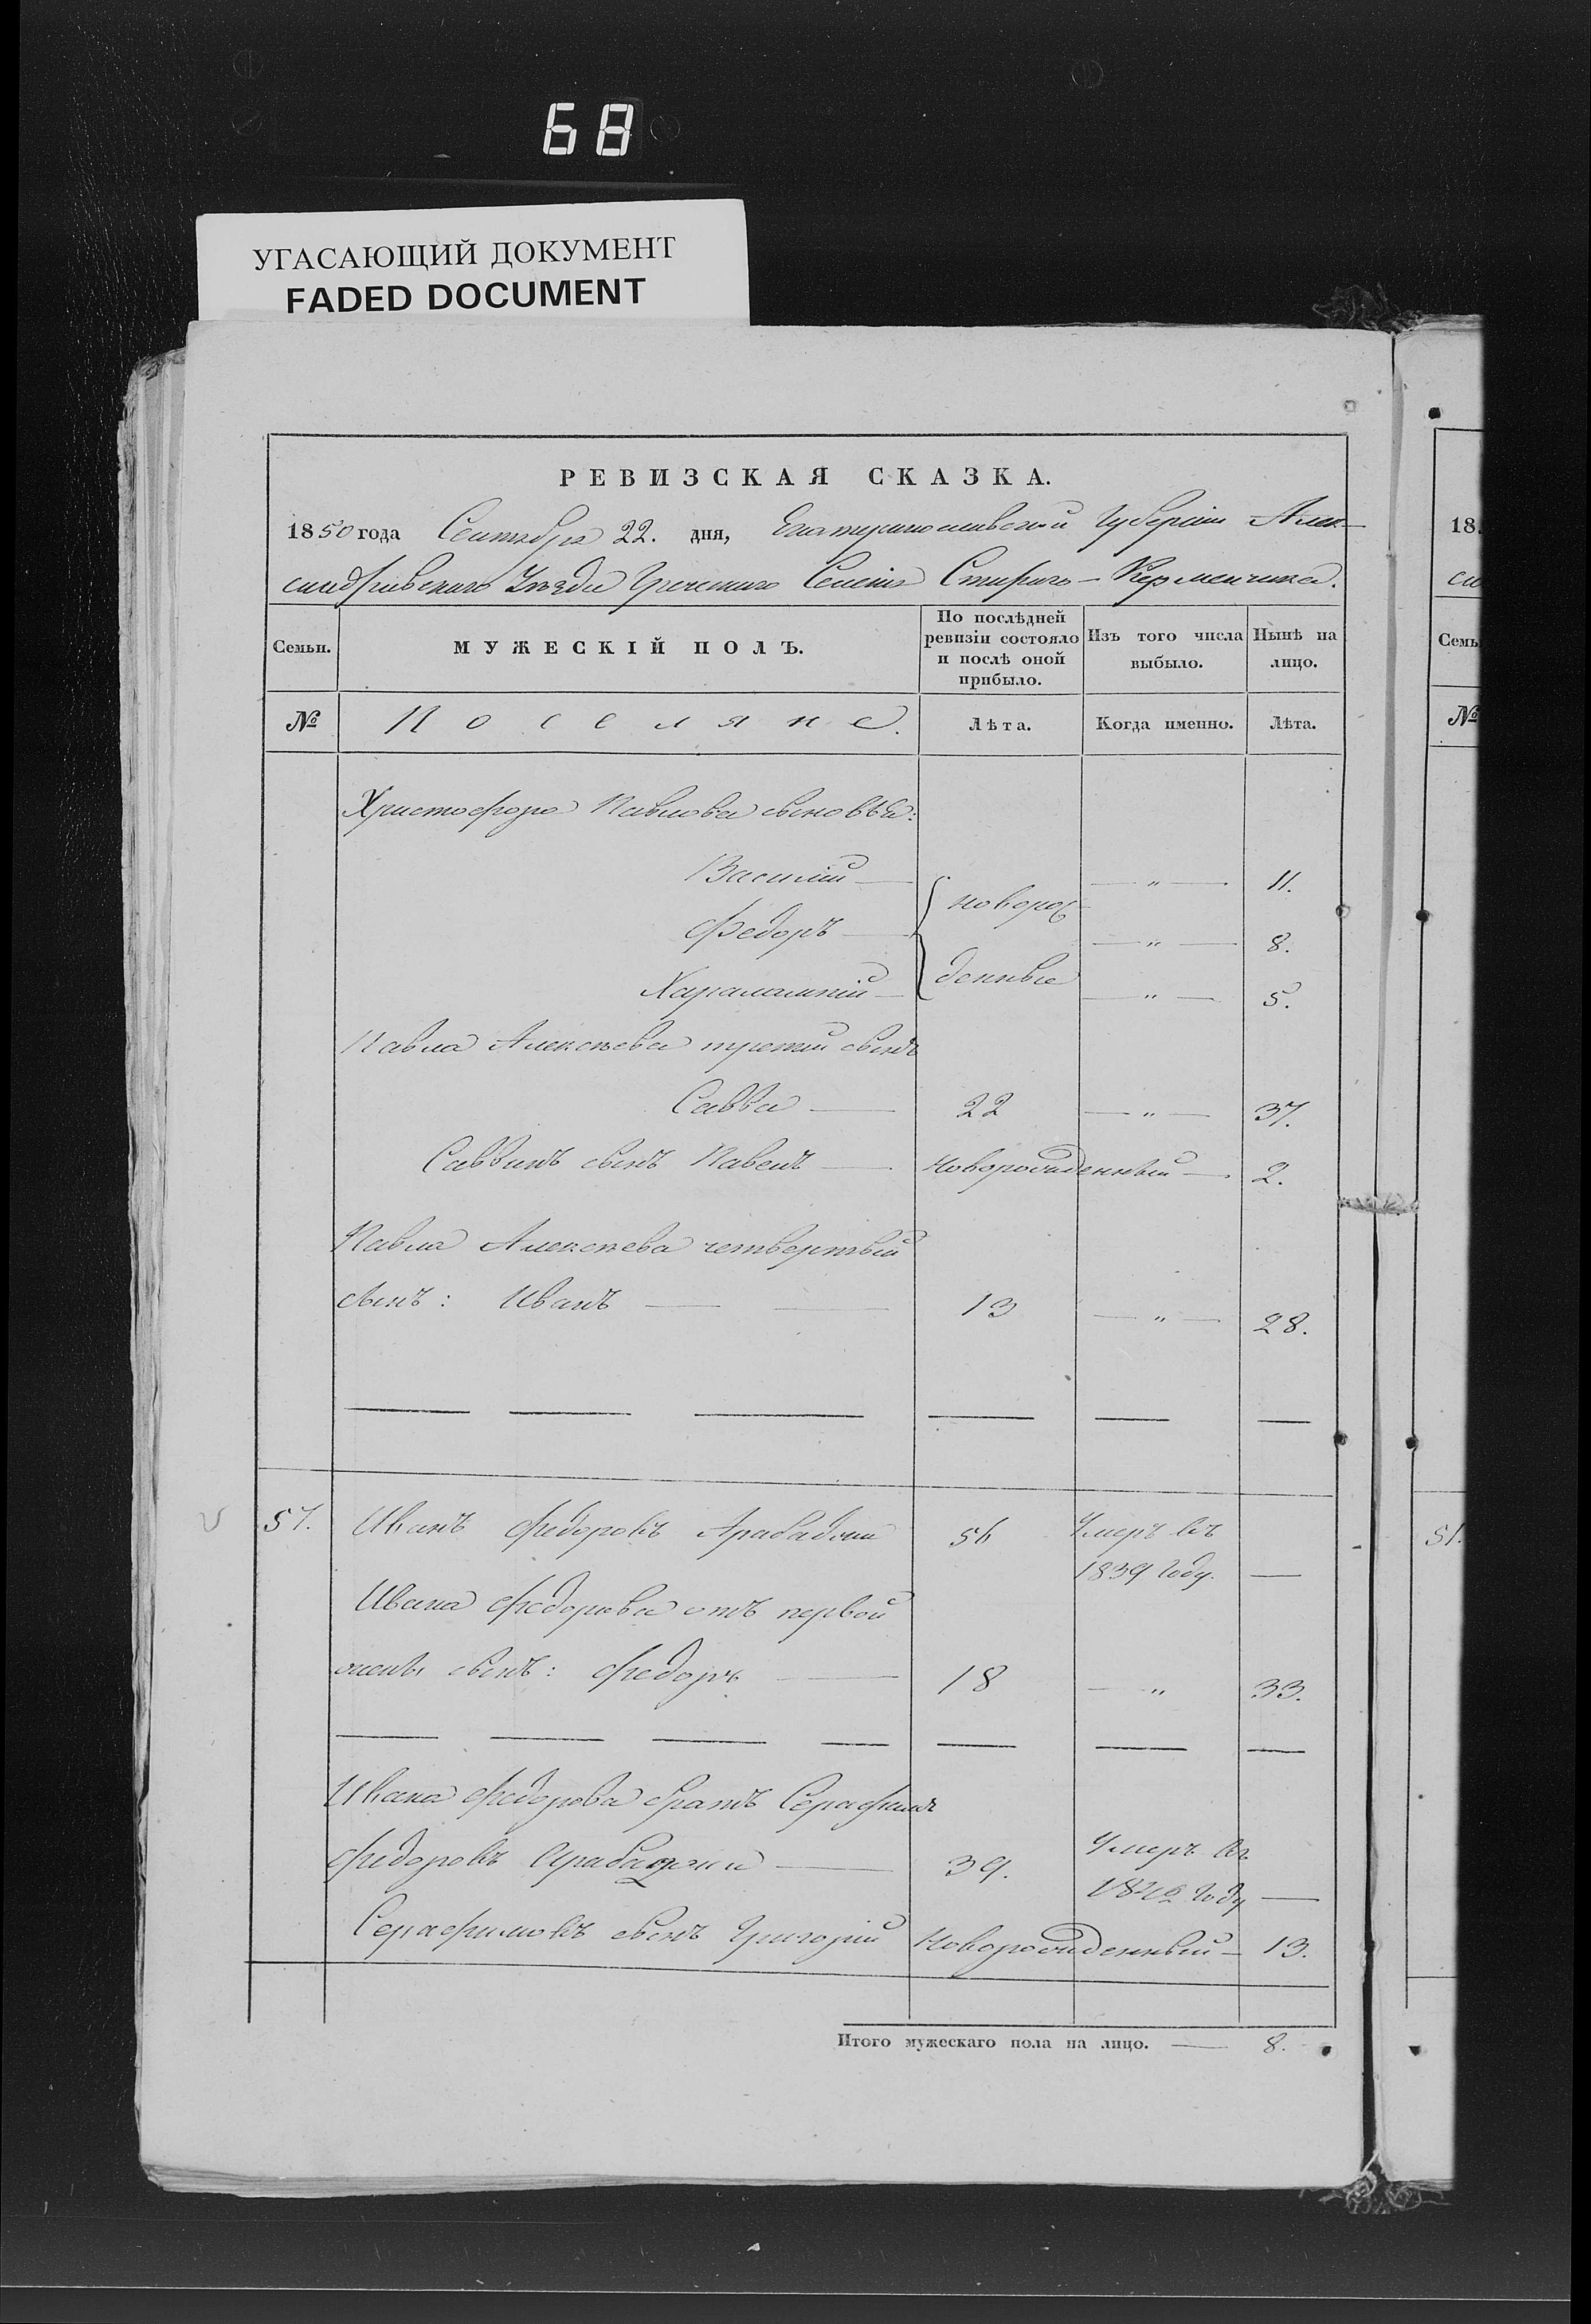 68
УГАСАЮЩИЙ ДОКУМЕНТ
FADED DOCUMENT
РЕВИЗСКАЯ СКАЗКА.
1850 года Сентября 22. дня, Екатеринославской Губернiи Алек-
сандровскаго Уезда Греческаго Селенiя Стараго-Керменчика.
Семьи. МУЖЕСКІЙ ПОЛЪ. По послѣдней ревизіи состояло и послѣ оной прибыло. Изъ того числа выбыло. Нынѣ на лицо.
№ Поселяне. Лѣта. Когда именно. Лѣта.
Христофора Павлова сыновья:
Василiй — новорож — " — 11.
Федоръ — — " — 8.
Харалампiй — денные — " — 5.
Павла Алексѣева третiй сынъ
Савва — 22 — " — 37.
Саввинъ сынъ Павелъ — новорожденный — 2.
Павла Алексѣева четвертый
сынъ: Иванъ — — 13 — " — 28.
57. Иванъ Федоровъ Арабаджи 56 Умеръ въ
1839 году. —
Ивана Федорова отъ первой
жены сынъ: Федоръ — 18 — " 33.
Ивана Федорова братъ Серафимъ
Федоровъ Арабаджи — 39. Умеръ въ
году —
Серафимовъ сынъ Григорiй Новорожденный — 13.
Итого мужескаго пола на лицо. — 8.
18
са
Семь
№
51.